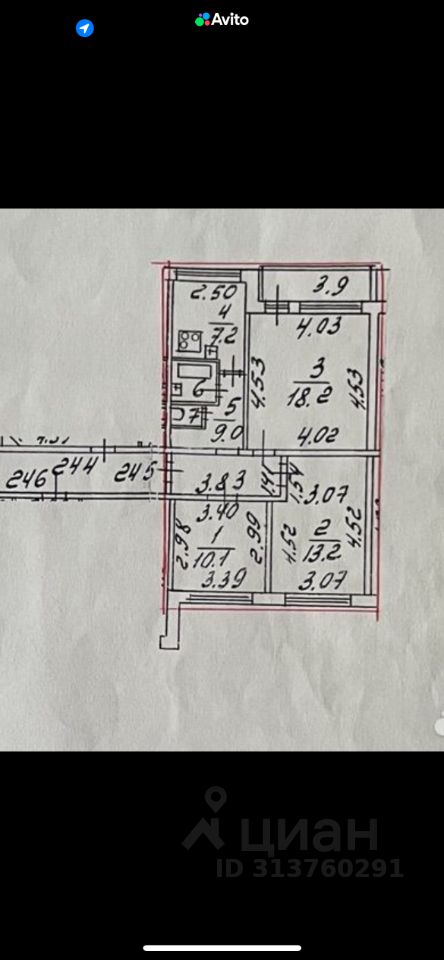 Avito
2.50
3.9
4
7.2
4.03
3
18.2
4.53
4.53
6
5
7
9.0
4.02
246
244
245
3.83
1.41
1.54
3.07
3.40
2.98
1
10.1
2.99
4.52
2
13.2
4.52
3.39
3.07
циан
ID 313760291